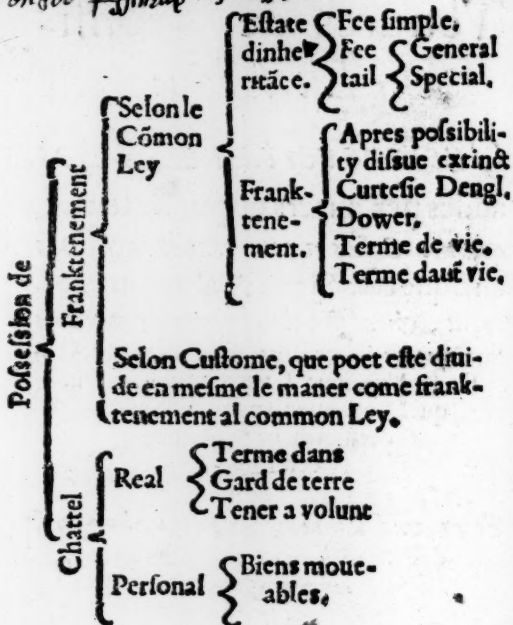 Possession de
Franktenement
Selon le
Cõmon
Ley
Estate
dinhe
ritãce.
Fee simple.
Fee
tail
General
Special.
Frank-
tene-
ment.
Apres possibili-
ty dissue extinct
Curtesie Dengl.
Dower.
Terme de vie.
Terme daut̃ vie.
Selon Custome, que poet estre diui-
de en mesme le maner come frank-
tenement al common Ley.
Chattel
Real
Terme dans
Gard de terre
Tener a volunt
Personal
Biens moue-
ables.